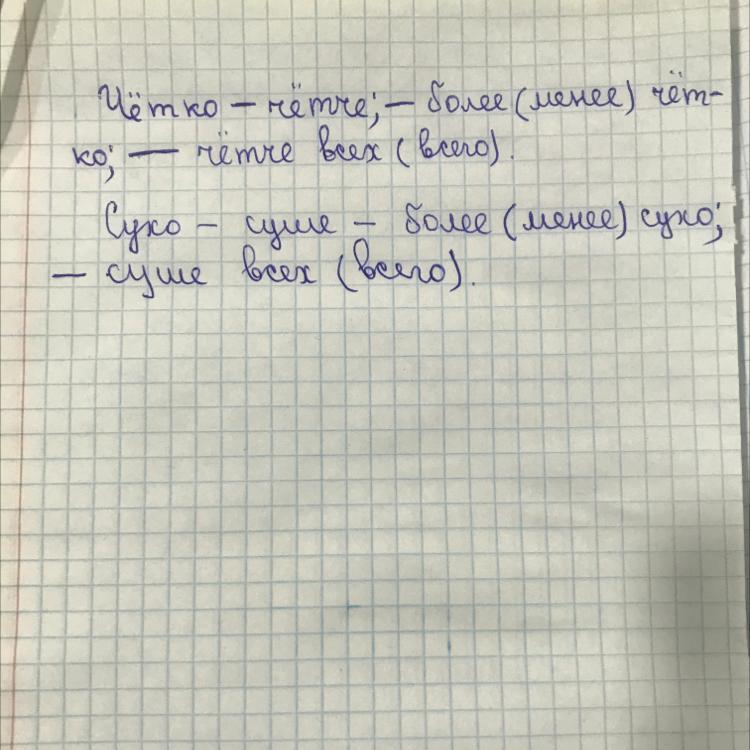 Чётко – чётче; – более (менее) чёт-
ко; — чётче всех (всего).
Сухо – суше – более (менее) сухо;
– суше всех (всего).